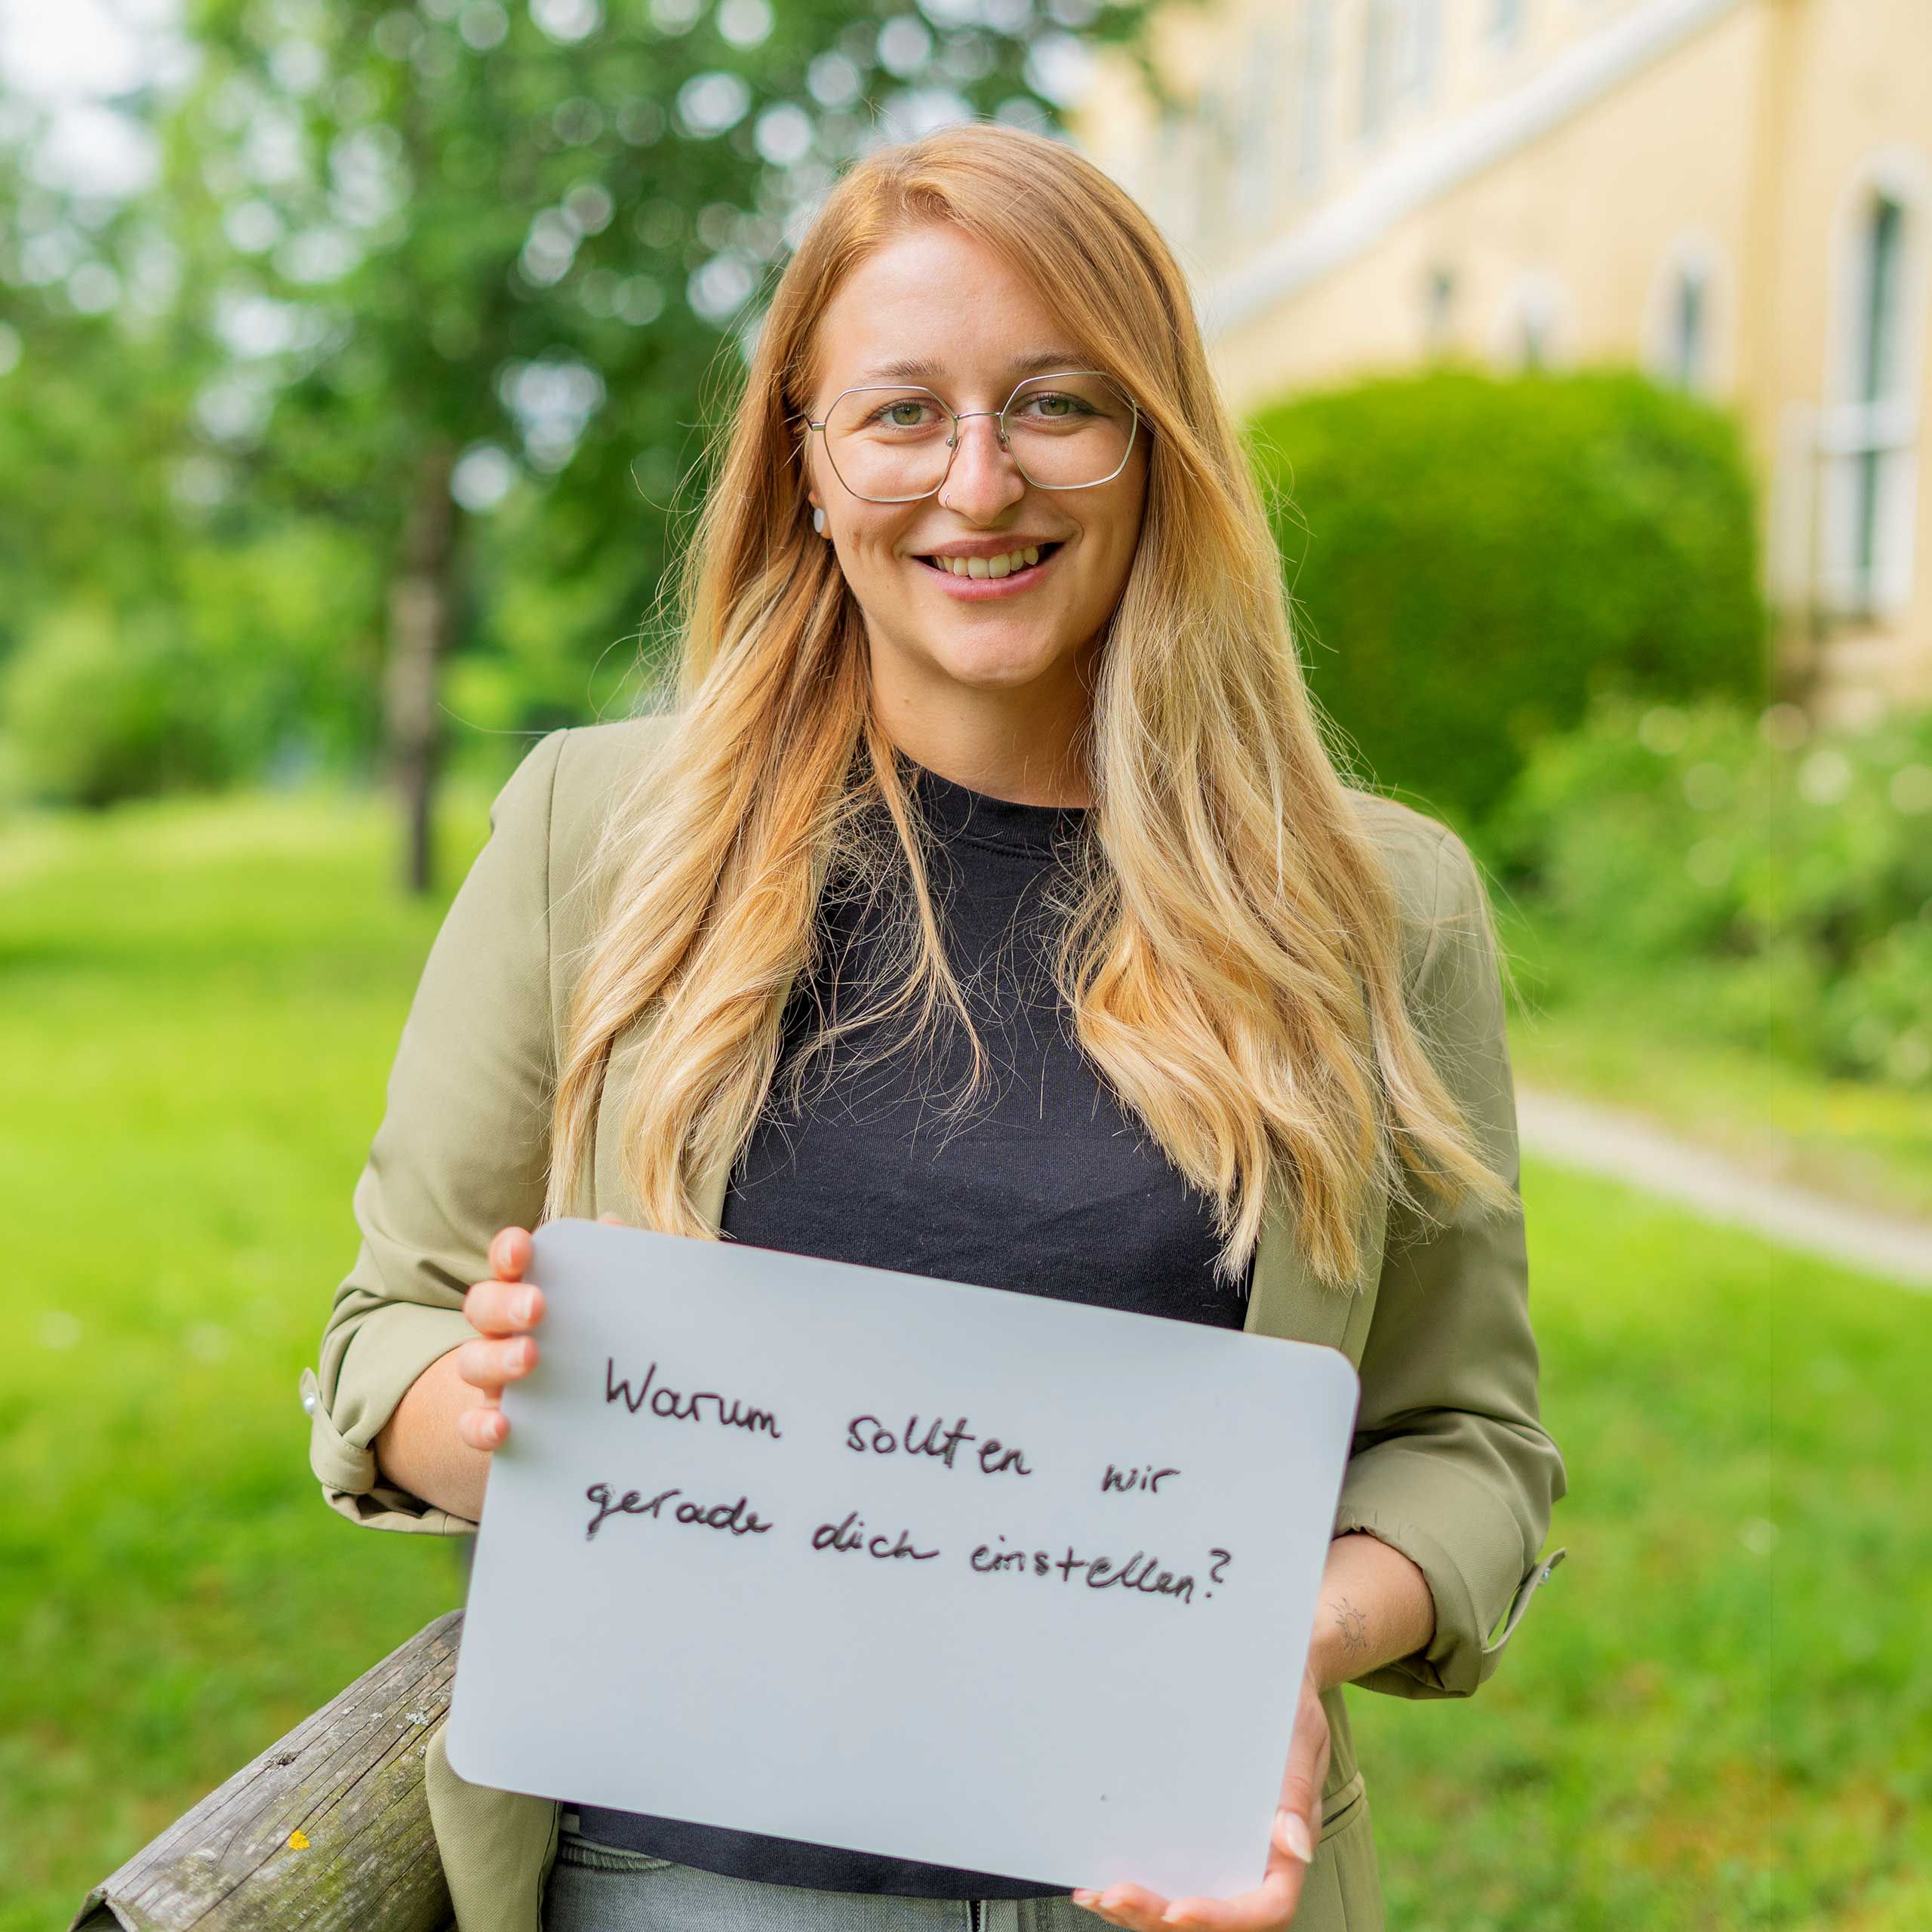 Warum sollten wir
gerade dich einstellen?